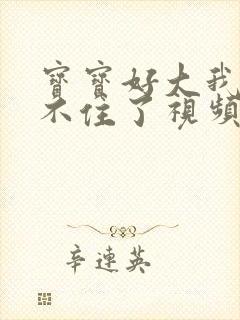 寶寶好大我
不住了視頻
辛連英